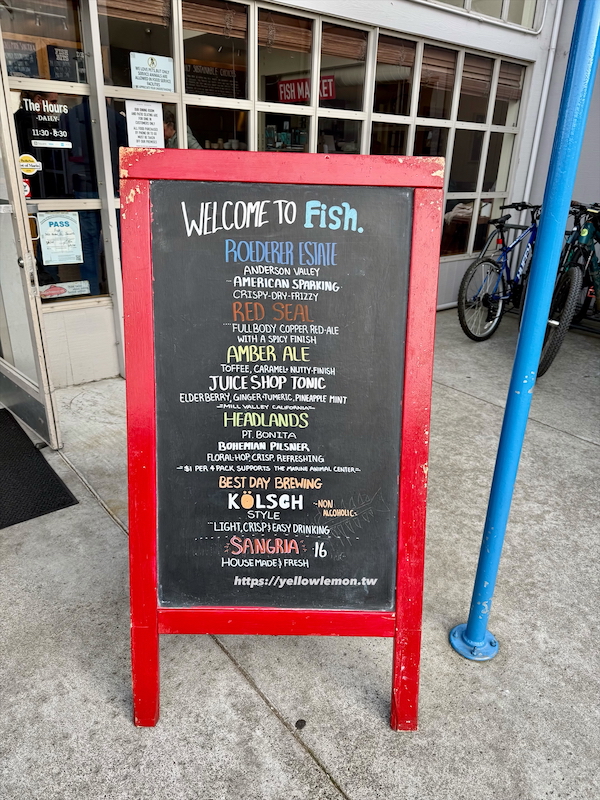 The Hours
-DAILY-
11:30-8:30
PASS
FISH MARKET
WELCOME TO Fish.
ROEDERER ESTATE
ANDERSON VALLEY
-AMERICAN SPARKING
CRISPY-DRY-FRIZZY
RED SEAL
FULL BODY COPPER RED-ALE
WITH A SPICY FINISH
AMBER ALE
TOFFEE, CARAMEL, NUTTY-FINISH
JUICE SHOP TONIC
ELDERBERRY, GINGER+TUMERIC, PINEAPPLE MINT
-MILL VALLEY CALIFORNIA-
HEADLANDS
PT. BONITA
BOHEMIAN PILSNER
FLORAL-HOP, CRISP, REFRESHING
-$1 PER 4 PACK SUPPORTS THE MARINE ANIMAL CENTER-
BEST DAY BREWING
KÖLSCH
-NON
ALCOHOLIC-
STYLE
LIGHT, CRISP & EASY DRINKING
SANGRIA · 16
HOUSE MADE & FRESH
https://yellowlemon.tw